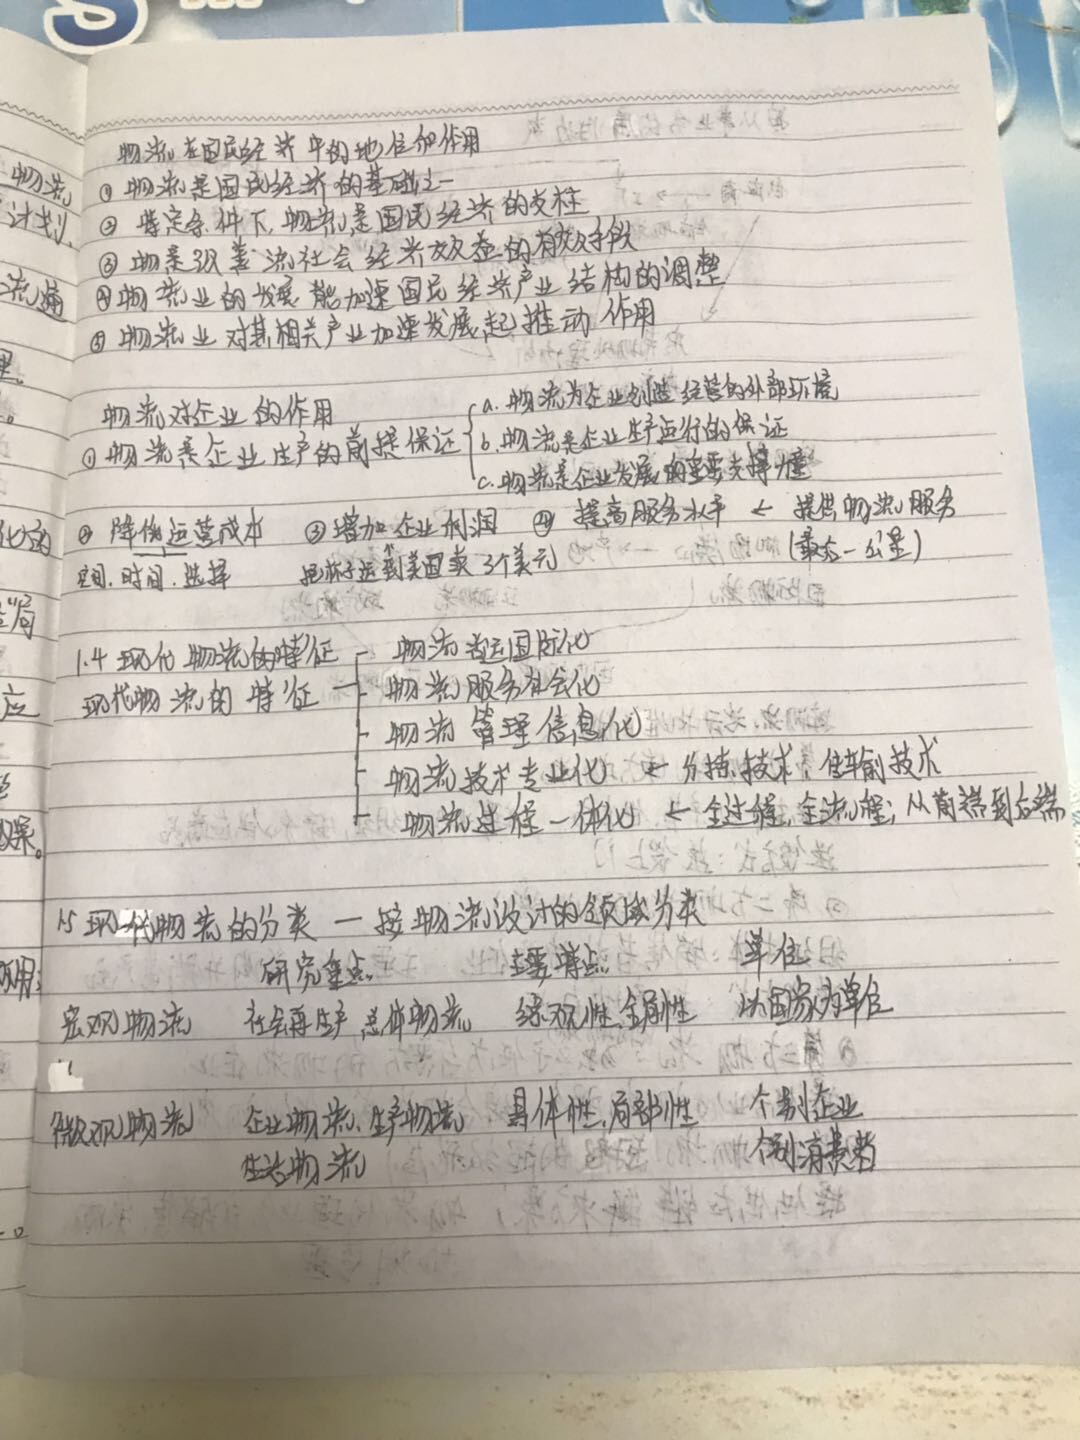 物流在国民经济中的地位和作用
① 物流是国民经济的基础之一
② 特定条件下,物流是国民经济的支柱
③ 物流改善流社会经济效益的有效手段
④ 物流业的发展能加速国民经济产业结构的调整
⑤ 物流业对其相关产业加速发展起推动作用
物流对企业的作用
a. 物流为企业创造经营的外部环境
① 物流是企业生产的前提保证
b. 物流是企业生产运行的保证
c. 物流是企业发展的重要支撑力量
② 降低运营成本 ③ 增加企业利润 ④ 提高服务水平 ← 提供物流服务
空间.时间.选择 把杯子运到美国卖 3个美元 (最后一公里)
1.4 现代物流的特征 物流运国际化
现代物流的特征 物流服务社会化
物流管理信息化
物流技术专业化 ← 分拣技术,传输技术
物流过程一体化 ← 全过程,全流程;从前端到后端
1.5 现代物流的分类 — 按物流设计的领域分类
研究重点 主要特点 单位
宏观物流 社会再生产总体物流 综观性,全局性 以国家为单位
微观物流 企业物流,生产物流 具体性,局部性 个别企业
生活物流 个别消费者
物流
计划,
流通
理。
化的
局
应
效果。